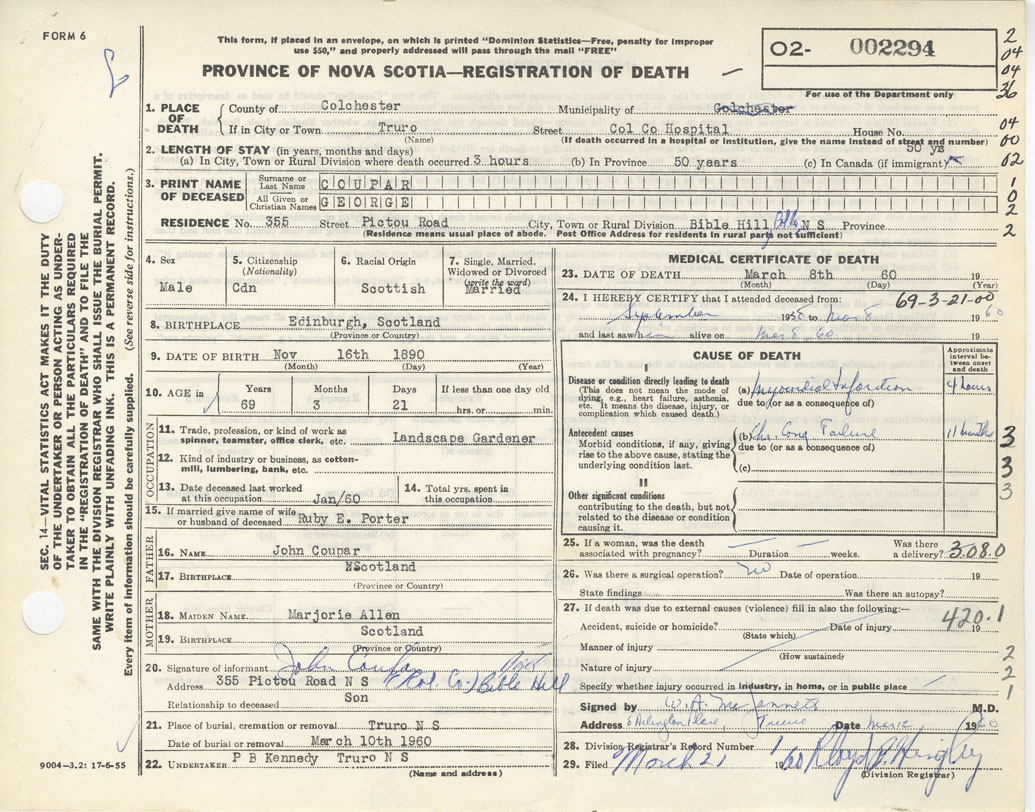 FORM 6
This form, if placed in an envelope, on which is printed "Dominion Statistics—Free, penalty for improper
use $50," and properly addressed will pass through the mail "FREE"
PROVINCE OF NOVA SCOTIA—REGISTRATION OF DEATH
O2- 002294
For use of the Department only
2
04
04
36
04
00
02
1
0
2
2
SEC. 14—VITAL STATISTICS ACT MAKES IT THE DUTY
OF THE UNDERTAKER OR PERSON ACTING AS UNDER-
TAKER TO OBTAIN ALL THE PARTICULARS REQUIRED
IN THE "REGISTRATION OF DEATH" AND TO FILE THE
SAME WITH THE DIVISION REGISTRAR WHO SHALL ISSUE THE BURIAL PERMIT.
WRITE PLAINLY WITH UNFADING INK. THIS IS A PERMANENT RECORD.
Every item of information should be carefully supplied. (See reverse side for instructions.)
1. PLACE OF DEATH County of Colchester Municipality of Colchester
If in City or Town Truro Street Col Co Hospital House No.
(Name) (If death occurred in a hospital or institution, give the name instead of street and number)
2. LENGTH OF STAY (in years, months and days) 50 ys
(a) In City, Town or Rural Division where death occurred 3 hours (b) In Province 50 years (c) In Canada (if immigrant)
3. PRINT NAME OF DECEASED Surname or Last Name COUPAR
All Given or Christian Names GEORGE
RESIDENCE No. 355 Street Pictou Road City, Town or Rural Division Bible Hill N S Province
(Residence means usual place of abode. Post Office Address for residents in rural parts not sufficient)
4. Sex
Male
5. Citizenship
(Nationality)
Cdn
6. Racial Origin
Scottish
7. Single, Married,
Widowed or Divorced
(write the word)
Married
8. BIRTHPLACE Edinburgh, Scotland
(Province or Country)
9. DATE OF BIRTH Nov 16th 1890
(Month) (Day) (Year)
10. AGE in Years Months Days If less than one day old
69 3 21 hrs. or min.
OCCUPATION
11. Trade, profession, or kind of work as
spinner, teamster, office clerk, etc. Landscape Gardener
12. Kind of industry or business, as cotton-
mill, lumbering, bank, etc.
13. Date deceased last worked
at this occupation Jan/60
14. Total yrs. spent in
this occupation
15. If married give name of wife
or husband of deceased Ruby E. Porter
FATHER
16. NAME John Coupar
17. BIRTHPLACE NScotland
(Province or Country)
MOTHER
18. MAIDEN NAME Marjorie Allen
19. BIRTHPLACE Scotland
(Province or Country)
20. Signature of informant John Coupar
Address 355 Pictou Road N S (Col. Co.) Bible Hill
Relationship to deceased Son
21. Place of burial, cremation or removal Truro N S
Date of burial or removal March 10th 1960
22. UNDERTAKER P B Kennedy Truro N S
(Name and address)
9004—3.2: 17-6-55
MEDICAL CERTIFICATE OF DEATH
23. DATE OF DEATH March 8th 60
(Month) (Day) (Year)
24. I HEREBY CERTIFY that I attended deceased from: 69-3-21-00
September 1958 to Mar 8 1960
and last saw him alive on Mar 8, 60 19
CAUSE OF DEATH
Approximate
interval be-
tween onset
and death
I
Disease or condition directly leading to death
(This does not mean the mode of
dying, e.g., heart failure, asthenia,
etc. It means the disease, injury, or
complication which caused death.)
(a) Myocardial Infarction 4 hours
due to (or as a consequence of)
Antecedent causes
Morbid conditions, if any, giving
rise to the above cause, stating the
underlying condition last.
(b) Chr. Cong. Failure 11 months
due to (or as a consequence of)
(c)
3
3
3
II
Other significant conditions
contributing to the death, but not
related to the disease or condition
causing it.
25. If a woman, was the death Was there
associated with pregnancy? Duration weeks. a delivery? 3080
26. Was there a surgical operation? no Date of operation 19
State findings Was there an autopsy?
27. If death was due to external causes (violence) fill in also the following:— 420.1
Accident, suicide or homicide? Date of injury 19
(State which)
Manner of injury 2
(How sustained)
Nature of injury 2
Specify whether injury occurred in industry, in home, or in public place 1
Signed by W. A. McJannett M.D.
Address 8 Arlington Place, Truro Date Mar. 1960
28. Division Registrar's Record Number 1
29. Filed March 21 1960
(Division Registrar)